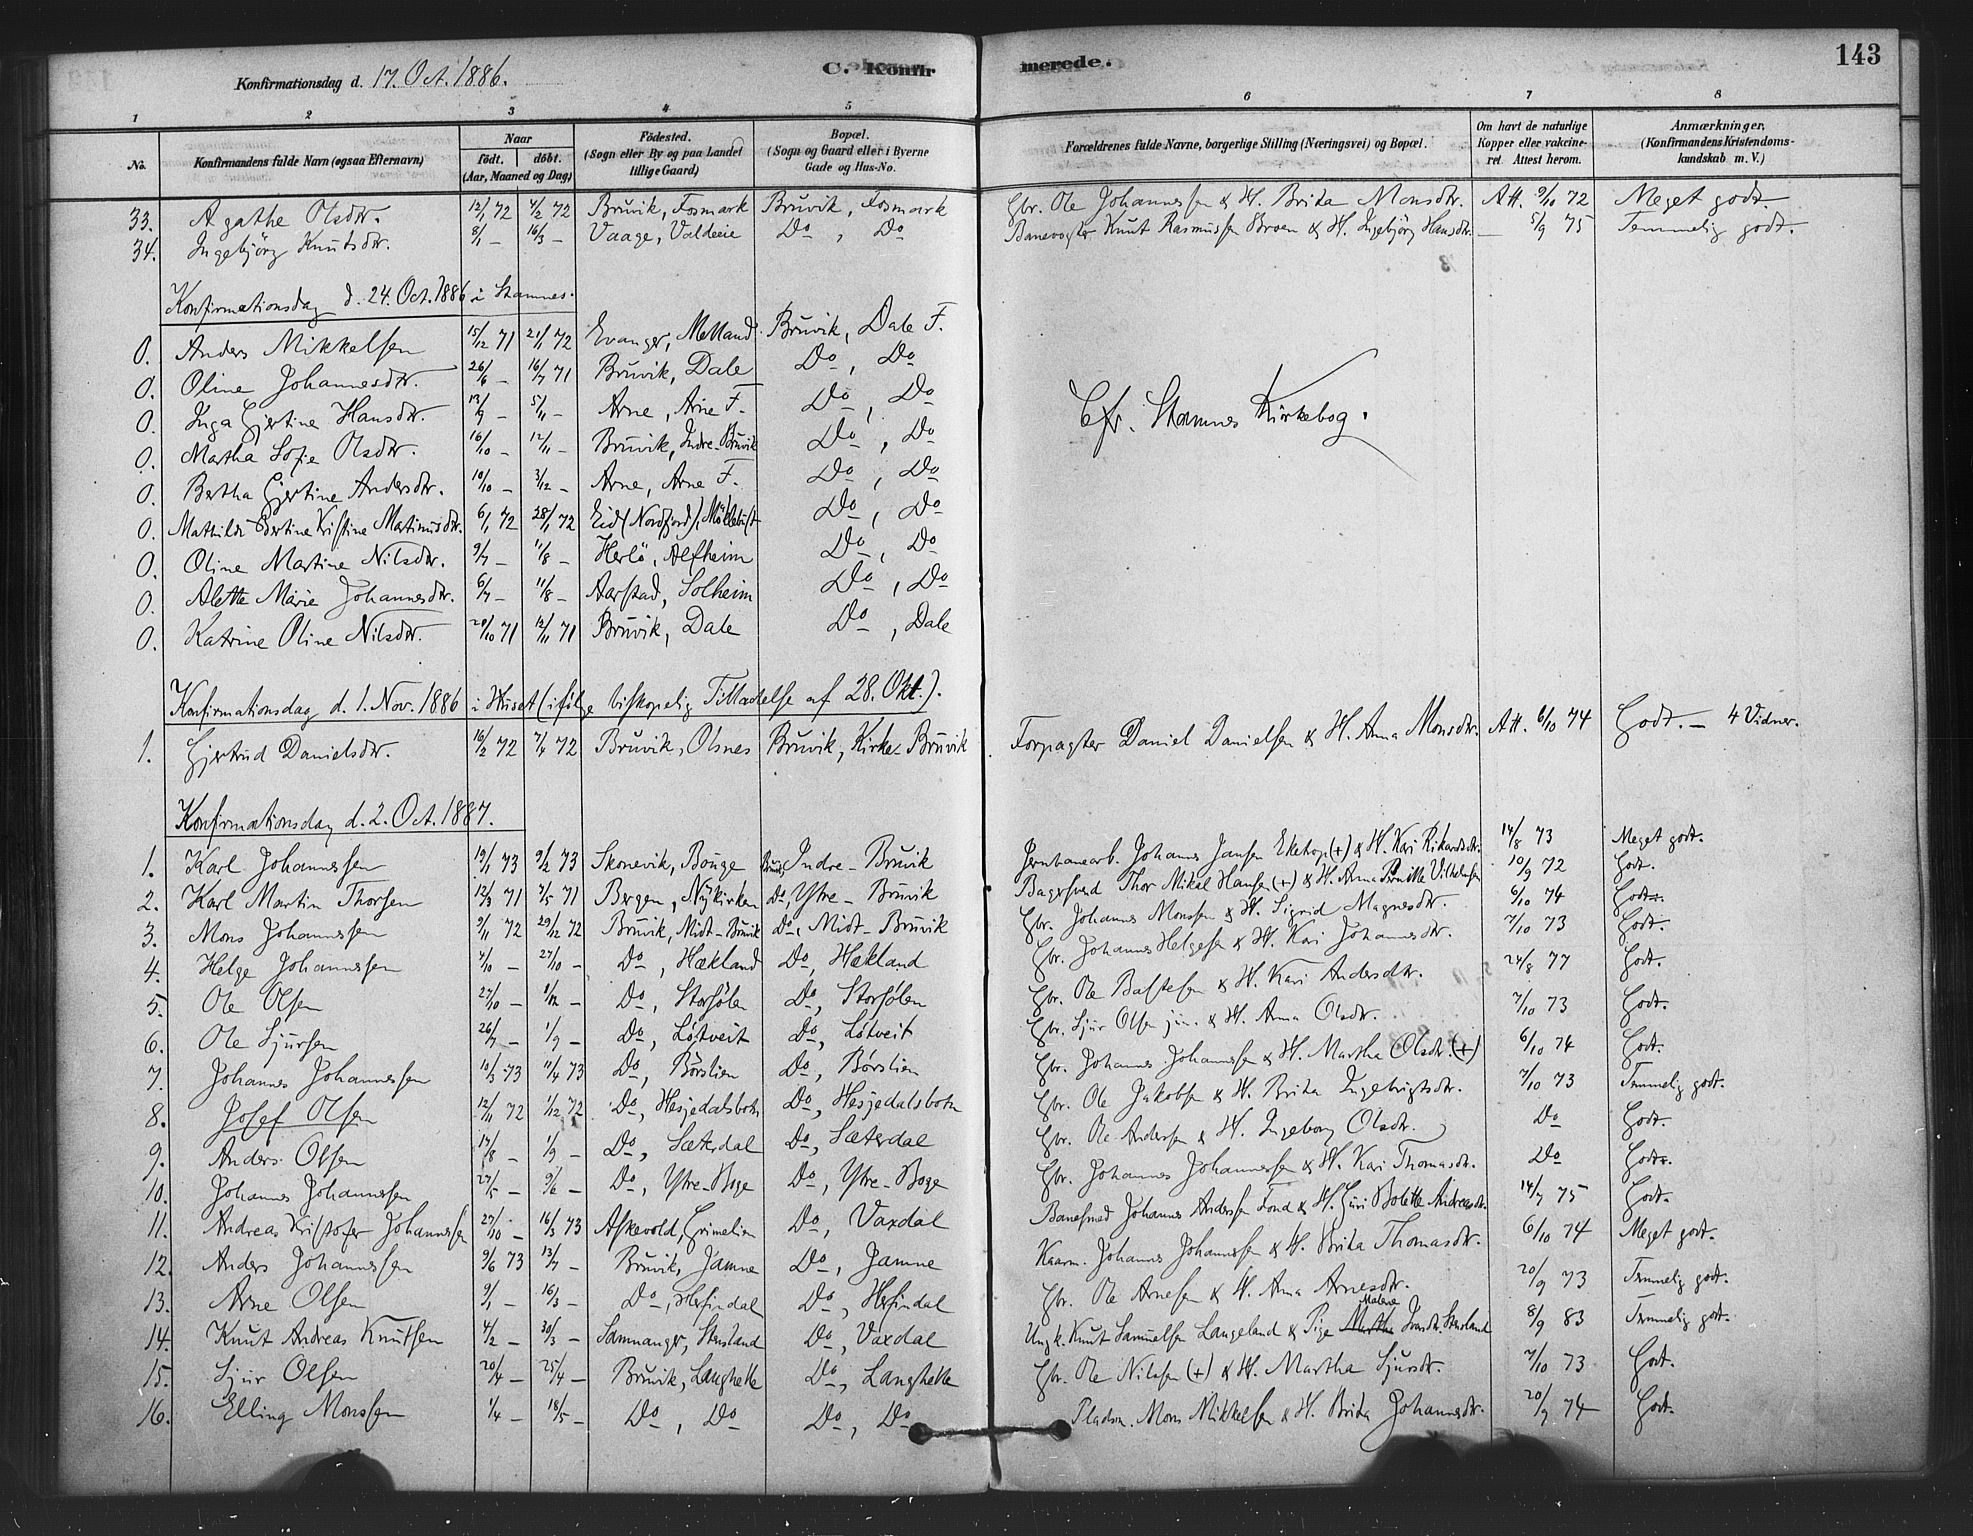 Konfirmationsdag d. 17. Oct. 1886.
C. Konfirmerede.
143
1 2 3 4 5 6 7 8
No. Konfirmandens fulde Navn (ogsaa Efternavn) Naar födt. döbt. (Aar, Maaned og Dag) Födested. (Sogn eller By og paa Landet tillige Gaard) Bopæl. (Sogn og Gaard eller i Byerne Gade og Hus-No. Forældrenes fulde Navne, borgerlige Stilling (Næringsvei) og Bopæl. Om havt de naturlige Kopper eller vaccineret Attest herom. Anmærkninger. (Konfirmandens Kristendomskundskab m. V.)
33. Agathe Olsdtr. 12/1 72 4/2 72 Bruvik, Fosmark Bruvik, Fosmark Gbr. Ole Johannessen & H. Brita Monsdtr. Att. 9/10 72 Meget godt.
34. Ingebjörg Knutsdtr. 8/1 – 16/3 – Vaage, Do, Do Banevogter Knut Rasmussen Broen & H. Ingebjörg Hansdtr. – 5/9 75 Temmelig godt.
Konfirmationsdag d. 24. Oct. 1886 i Stamnes.
0. Anders Mikkelsen 15/12 71 21/1 72 Evanger, Melland Bruvik, Dale F.
0. Oline Johannesdtr. 26/6 – 16/7 71 Bruvik, Dale Do, Do
Cfr. Stamnes Kirkebog.
0. Inga Gjertine Hansdtr. 13/9 – 5/11 – Arne, Arne F. Do, Do
0. Martha Sofie Olsdtr. 16/10 – 12/11 – Bruvik, Indre-Bruvik Do, Do
0. Bertha Gjertine Andersdtr. 10/10 – 3/12 – Arne, Arne F. Do, Do
0. Mathilde Bertine Kristine Martinusdtr. 6/1 72 28/1 72 Eid (Nordfjord), Möklebust Do, Do
0. Oline Martine Nilsdtr. 9/7 – 11/8 – Herlö, Alfheim Do, Do
0. Alette Marie Johannesdtr. 6/7 – 11/8 – Aarstad, Solheim Do, Do
0. Katrine Oline Nilsdtr. 20/10 71 12/11 71 Bruvik, Dale Do, Dale
Konfirmationsdag d. 1. Nov. 1886 i Huset (ifølge biskopelig Tilladelse af 28. Okt.).
1. Gjertrud Danielsdtr. 16/2 72 7/4 72 Bruvik, Olsnes Bruvik, Kirke-Bruvik Forpagter Daniel Danielsen & H. Anna Monsdtr. Att. 6/10 74 Godt. – 4 Vidner.
Konfirmationsdag d. 2. Oct. 1887.
1. Karl Johannessen 19/1 73 9/2 73 Skonevik, Bouge Bruvik, Indre-Bruvik Jernbanearb. Johannes Jansen Eketop (+) & H. Kari Rikardsdtr. 14/8 73 Meget godt.
2. Karl Martin Thorsen 12/3 71 4/5 71 Bergen, Nykirken Do, Ytre-Bruvik Bagersvend Thor Mikal Hansen (+) & H. Anna Pernille Vilhelmsen 10/9 72 Godt.
3. Mons Johannessen 9/11 72 29/12 72 Bruvik, Midt-Bruvik Do, Midt-Bruvik Gbr. Johannes Monssen & H. Sigrid Magnesdtr. 6/10 74 Godt.
4. Helge Johannessen 4/10 – 27/10 – Do, Hækland Do, Hækland Gbr. Johannes Helgesen & H. Kari Johannesdtr. 7/10 73 Godt.
5. Ole Olsen 27/10 – 8/12 – Do, Storsölen Do, Storsölen Gbr. Ole Bastesen & H. Kari Andersdtr. 24/8 77 Godt.
6. Ole Sjursen 26/7 – 1/9 – Do, Løtveit Do, Løtveit Gbr. Sjur Olsen jun. & H. Anna Olsdtr. 7/10 73 Godt.
7. Johannes Johannessen 10/3 73 11/4 73 Do, Börslien Do, Börslien Gbr. Johannes Johannessen & H. Martha Olsdtr. (+) 6/10 74 Godt.
8. Josef Olsen 12/11 72 1/12 72 Do, Hesjedalsbotn Do, Hesjedalsbotn Gbr. Ole Jakobsen & H. Brita Ingebrigtsdtr. 7/10 73 Temmelig godt.
9. Anders Olsen 17/8 – 1/9 – Do, Sæterdal Do, Sæterdal Gbr. Ole Andersen & H. Ingeborg Olsdtr. Do Godt.
10. Johannes Johannessen 27/5 – 9/6 – Do, Ytre-Boge Do, Ytre-Boge Gbr. Johannes Johannessen & H. Kari Thomasdtr. Do Godt.
11. Andreas Kristofer Johannessen 27/10 – 16/3 73 Askevold, Grimelien Do, Vaxdal Banesmed Johannes Andersen Fond & H. Guri Bolette Andreasdtr. 14/7 75 Godt.
12. Anders Johannessen 9/6 73 13/7 – Bruvik, Jamne Do, Jamne Kaarm. Johannes Johannessen & H. Brita Thomasdtr. 6/10 74 Meget godt.
13. Arne Olsen 9/1 – 16/3 – Do, Herfindal Do, Herfindal Gbr. Ole Arnesen & H. Anna Arnesdtr. 20/9 73 Temmelig godt.
14. Knut Andreas Knutsen 4/2 – 30/3 – Samnanger, Stensland Do, Vaxdal Ungk. Knut Samuelsen Langeland & Pige Martha Malene Ivarsdtr. Stensland 8/9 83 Temmelig godt.
15. Sjur Olsen 20/4 – 25/4 – Bruvik, Langhelle Do, Langhelle Gbr. Ole Nilssen (+) & H. Martha Sjursdtr. 7/10 73 Godt.
16. Elling Monssen 1/4 – 18/5 – Do, Do Do, Do Pladsm. Mons Mikkelsen & H. Brita Johannesdtr. 20/9 74 Godt.